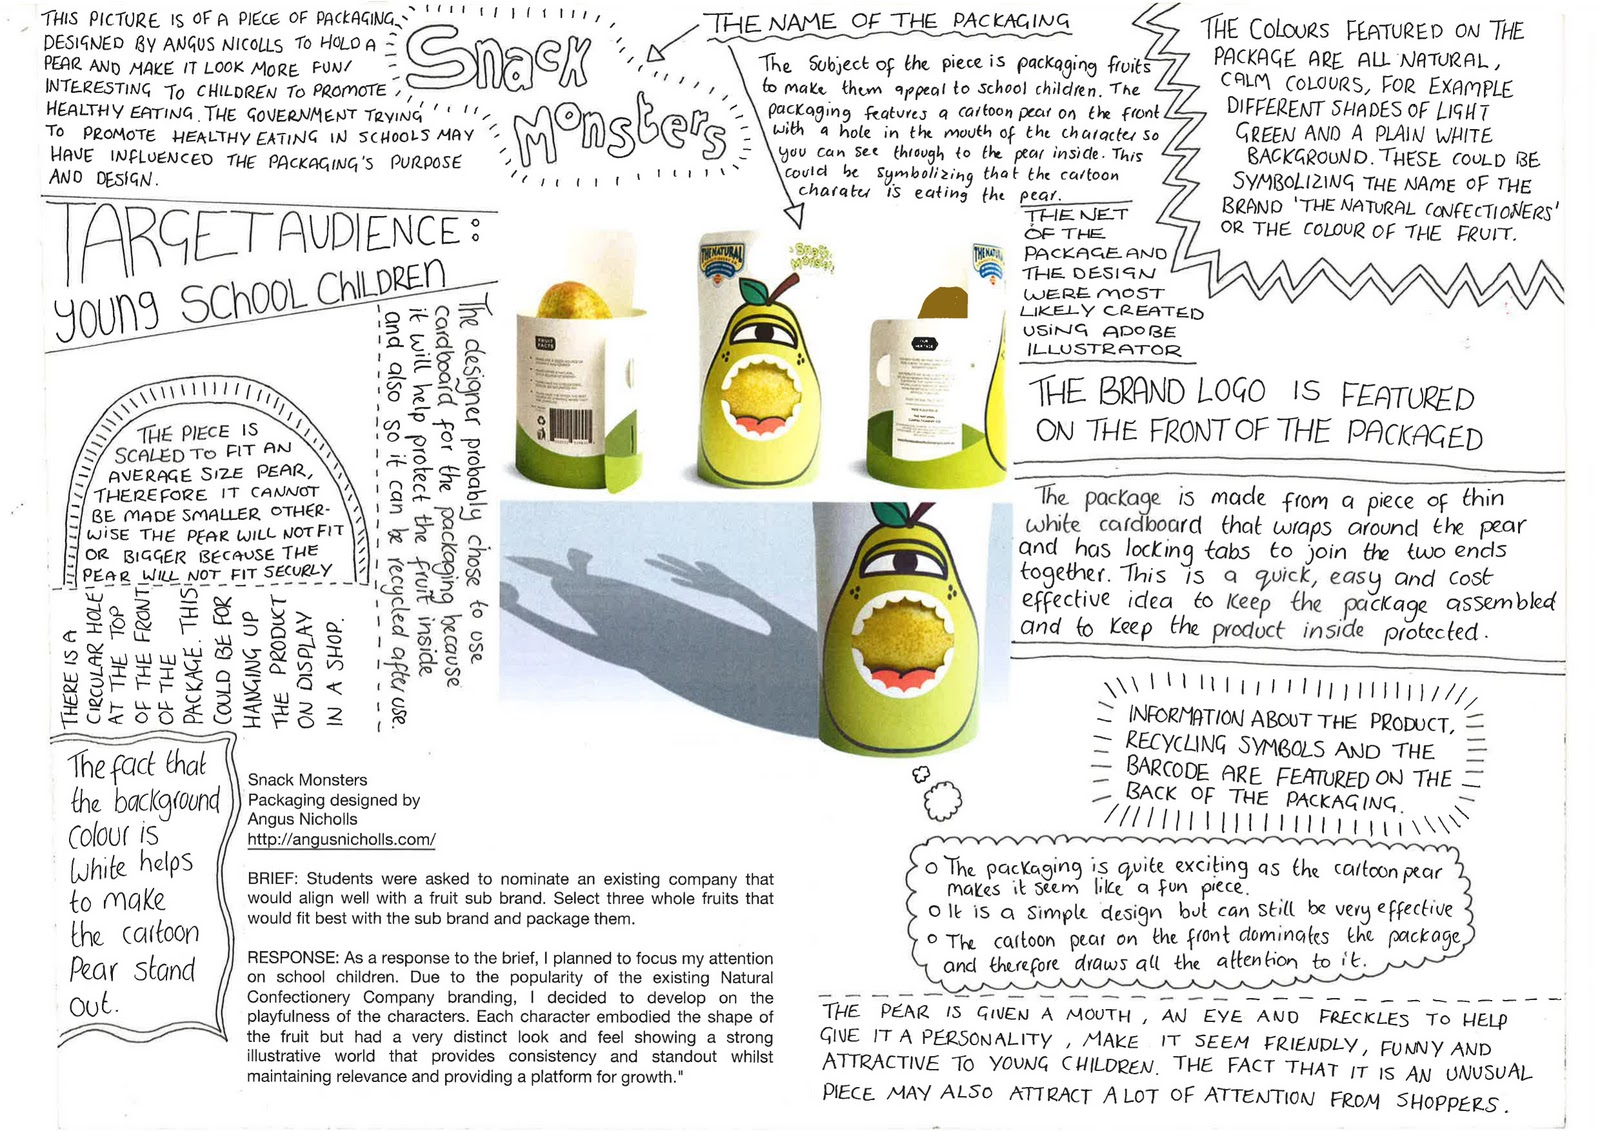 THIS PICTURE IS OF A PIECE OF PACKAGING
DESIGNED BY ANGUS NICOLLS TO HOLD A
PEAR AND MAKE IT LOOK MORE FUN/
INTERESTING TO CHILDREN TO PROMOTE
HEALTHY EATING. THE GOVERNMENT TRYING
TO PROMOTE HEALTHY EATING IN SCHOOLS MAY
HAVE INFLUENCED THE PACKAGING'S PURPOSE
AND DESIGN.
Snack
Monsters
THE NAME OF THE PACKAGING
The Subject of the piece is packaging fruits
to make them appeal to school children. The
packaging features a cartoon pear on the front
with a hole in the mouth of the character so
you can see through to the pear inside. This
could be symbolizing that the cartoon
charater is eating the pear.
THE COLOURS FEATURED ON THE
PACKAGE ARE ALL NATURAL,
CALM COLOURS, FOR EXAMPLE
DIFFERENT SHADES OF LIGHT
GREEN AND A PLAIN WHITE
BACKGROUND. THESE COULD BE
SYMBOLIZING THE NAME OF THE
BRAND 'THE NATURAL CONFECTIONERS'
OR THE COLOUR OF THE FRUIT.
TARGET AUDIENCE:
YOUNG SCHOOL CHILDREN
THE NET
OF THE
PACKAGE AND
THE DESIGN
WERE MOST
LIKELY CREATED
USING ADOBE
ILLUSTRATOR
FRUIT
FACTS
THE NATURAL
Snack
Monsters
THE NATURAL
The designer probably chose to use
cardboard for the packaging because
it will help protect the fruit inside
and also so it can be recycled after use.
THE BRAND LOGO IS FEATURED
ON THE FRONT OF THE PACKAGED
THE PIECE IS
SCALED TO FIT AN
AVERAGE SIZE PEAR,
THEREFORE IT CANNOT
BE MADE SMALLER OTHER-
WISE THE PEAR WILL NOT FIT
OR BIGGER BECAUSE THE
PEAR WILL NOT FIT SECURLY
The package is made from a piece of thin
white cardboard that wraps around the pear
and has locking tabs to join the two ends
together. This is a quick, easy and cost
effective idea to keep the package assembled
and to keep the product inside protected.
THERE IS A
CIRCULAR HOLE
AT THE TOP
OF THE FRONT
OF THE
PACKAGE. THIS
COULD BE FOR
HANGING UP
THE PRODUCT
ON DISPLAY
IN A SHOP.
INFORMATION ABOUT THE PRODUCT,
RECYCLING SYMBOLS AND THE
BARCODE ARE FEATURED ON THE
BACK OF THE PACKAGING.
The fact that
the background
colour is
white helps
to make
the cartoon
Pear stand
out.
Snack Monsters
Packaging designed by
Angus Nicholls
http://angusnicholls.com/
BRIEF: Students were asked to nominate an existing company that
would align well with a fruit sub brand. Select three whole fruits that
would fit best with the sub brand and package them.
RESPONSE: As a response to the brief, I planned to focus my attention
on school children. Due to the popularity of the existing Natural
Confectionery Company branding, I decided to develop on the
playfulness of the characters. Each character embodied the shape of
the fruit but had a very distinct look and feel showing a strong
illustrative world that provides consistency and standout whilst
maintaining relevance and providing a platform for growth."
o The packaging is quite exciting as the cartoon pear
makes it seem like a fun piece.
o It is a simple design but can still be very effective
o The cartoon pear on the front dominates the package
and therefore draws all the attention to it.
THE PEAR IS GIVEN A MOUTH, AN EYE AND FRECKLES TO HELP
GIVE IT A PERSONALITY, MAKE IT SEEM FRIENDLY, FUNNY AND
ATTRACTIVE TO YOUNG CHILDREN. THE FACT THAT IT IS AN UNUSUAL
PIECE MAY ALSO ATTRACT A LOT OF ATTENTION FROM SHOPPERS.